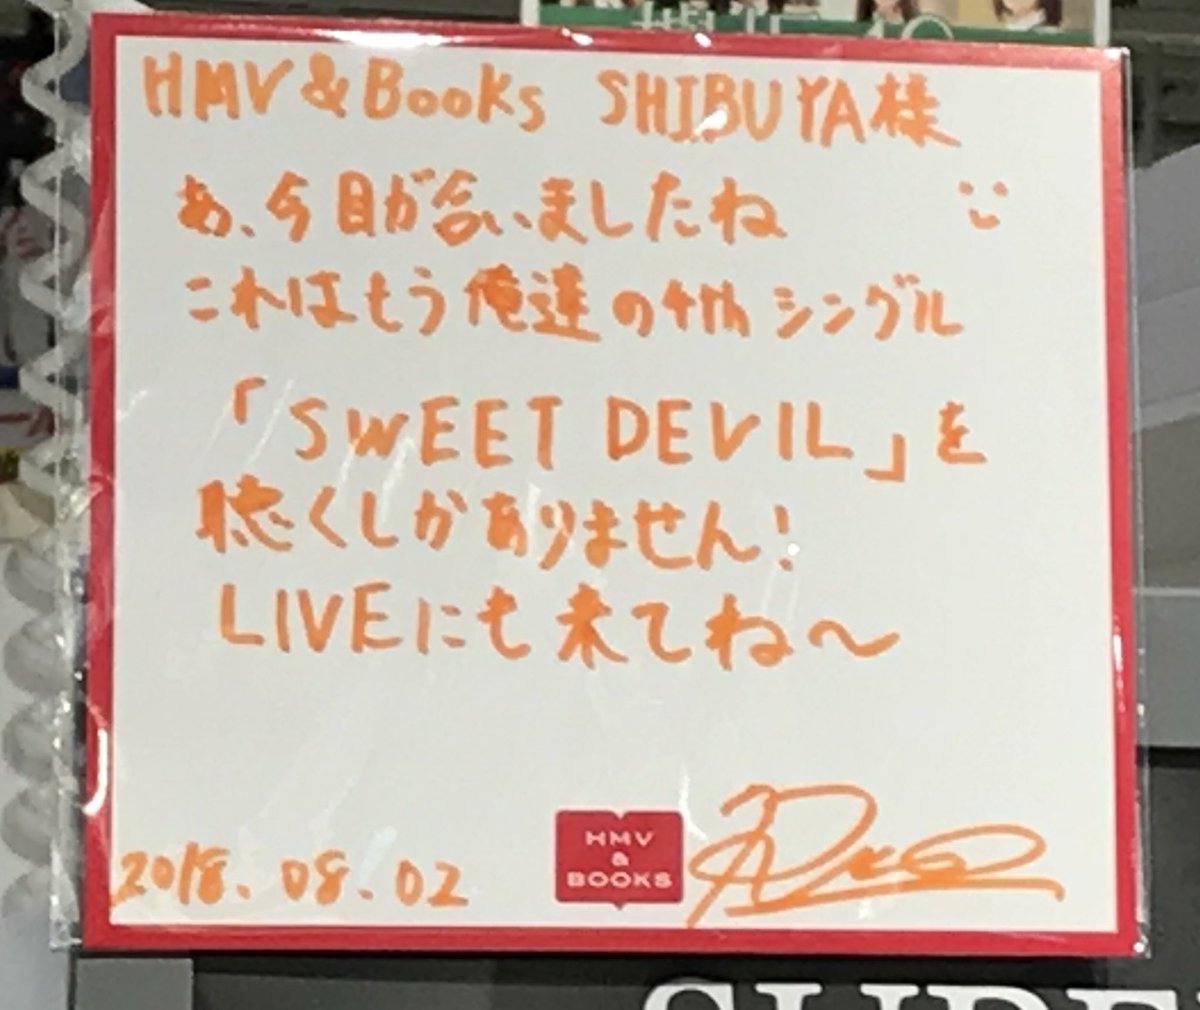 HMV&BooKs SHIBUYA様
あ、今目が合いましたね
これはもう俺達の4thシングル
「SWEET DEVIL」を
聴くしかありません!
LIVEにも来てね〜
2018.08.02
HMV
&
BOOKS